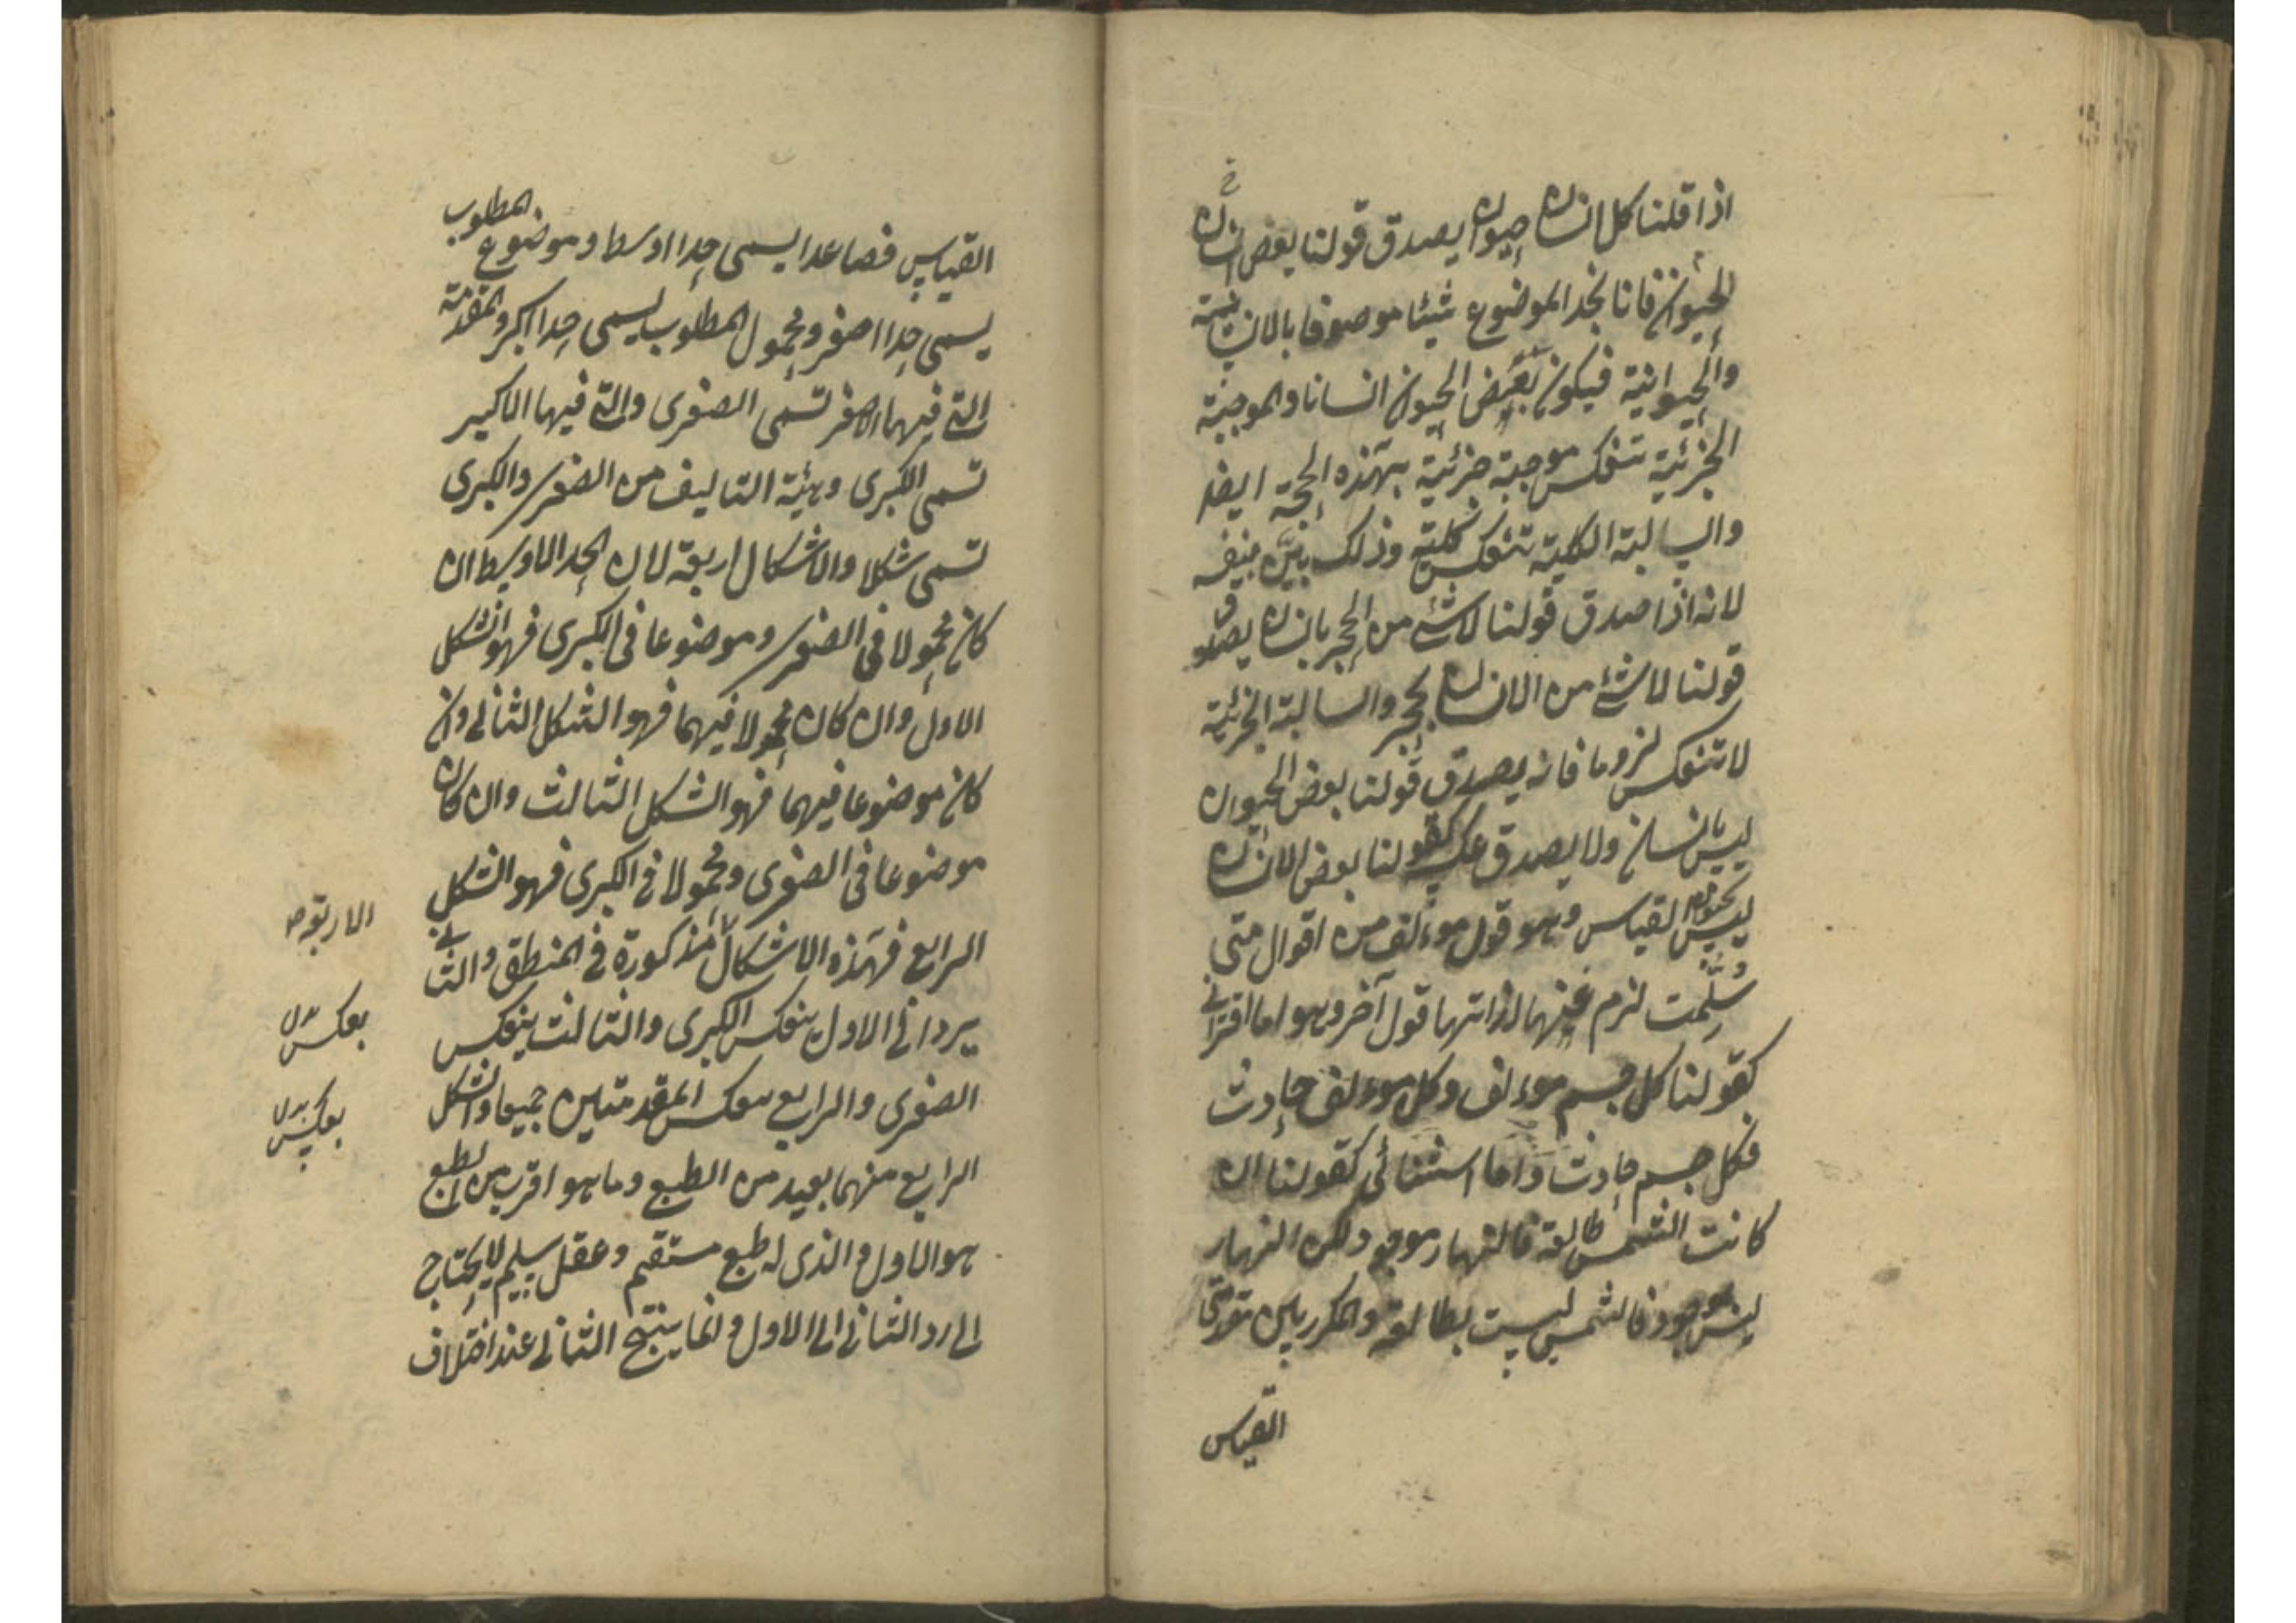 اذا قلنا كل انسان حيوان يصدق قولنا بعض انسان
الحيوان فانا نجد الموضوع شيئا موصوفا بالانسانية
والحيوانية فيكون بعض الحيوان انسانا والموجبة
الجزئية تنعكس موجبة جزئية بهذه الحجة ايضا
والسالبة الكلية تنعكس كلية وذلك بين بنفسه
لانه اذا صدق قولنا لا شئ من الحجر بانسان يصدق
قولنا لا شئ من الانسان بحجر والسالبة الجزئية
لا تنعكس لزوما فانه يصدق قولنا بعض الحيوان
ليس بانسان ولا يصدق عكسه كقولنا بعض الانسان
ليس بحيوان القياس وهو قول موءلف من اقوال متى
سُلِّمت لزم عنها لذاتها قول آخر وهو اما اقترانى
كقولنا كل جسم موءلف وكل موءلف حادث
فكل جسم حادث واما استثنائى كقولنا ان
كانت الشمس طالعة فالنهار موجود لكن النهار
ليس موجود فالشمس ليست بطالعة والمكرر بين مقدمتى
القياس
القياس فصاعدا يسمى حدا اوسط وموضوع المطلوب
يسمى حدا اصغر ومحمول المطلوب يسمى حدا اكبر والمقدمة
التى فيها الاصغر تسمى الصغرى والتى فيها الاكبر
تسمى الكبرى وهيئة التاليف من الصغرى والكبرى
تسمى شكلا والاشكال اربعة لان الحد الاوسط ان
كان محمولا فى الصغرى وموضوعا فى الكبرى فهو الشكل
الاول وان كان محمولا فيهما فهو الشكل الثانى وان
كان موضوعا فيهما فهو الشكل الثالث وان كان
موضوعا فى الصغرى ومحمولا فى الكبرى فهو الشكل
الرابع فهذه الاشكال مذكورة فى المنطق والثانى
الاربعة
يرد الى الاول بعكس الكبرى والثالث بعكس
بعكس
الصغرى والرابع بعكس المقدمتين جميعا والشكل
بعكس
الرابع منهما بعيد من الطبع وما هو اقرب من الطبع
هو الاول والذى له طبع مستقيم وعقل سليم لا يحتاج
الى رد الثانى الى الاول وانما ينتج الثانى عند اختلاف